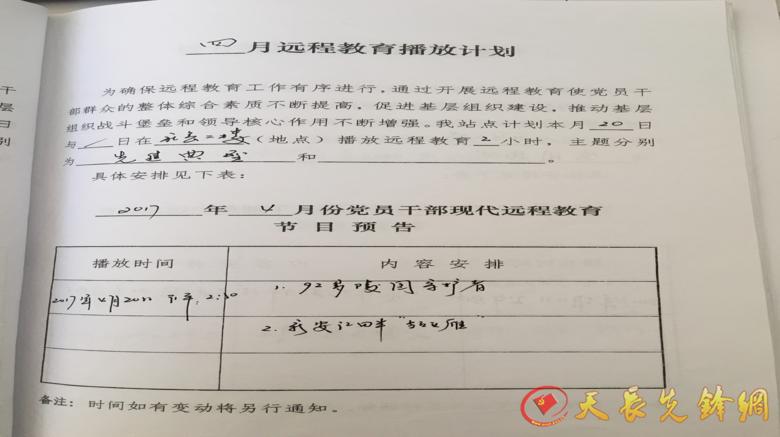 四月远程教育播放计划
为确保远程教育工作有序进行,通过开展远程教育使党员干
部群众的整体综合素质不断提高,促进基层组织建设,推动基层
组织战斗堡垒和领导核心作用不断增强。我站点计划本月20日
与 日在 二楼(地点)播放远程教育2小时,主题分别
为先进典型和 。
具体安排见下表:
2017年4月份党员干部现代远程教育
节目预告
播放时间 内容安排
2017年4月20日 下午:2:30 1. 92岁
2. 我 "
备注: 时间如有变动将另行通知。
天長先鋒網
干
层
日
别